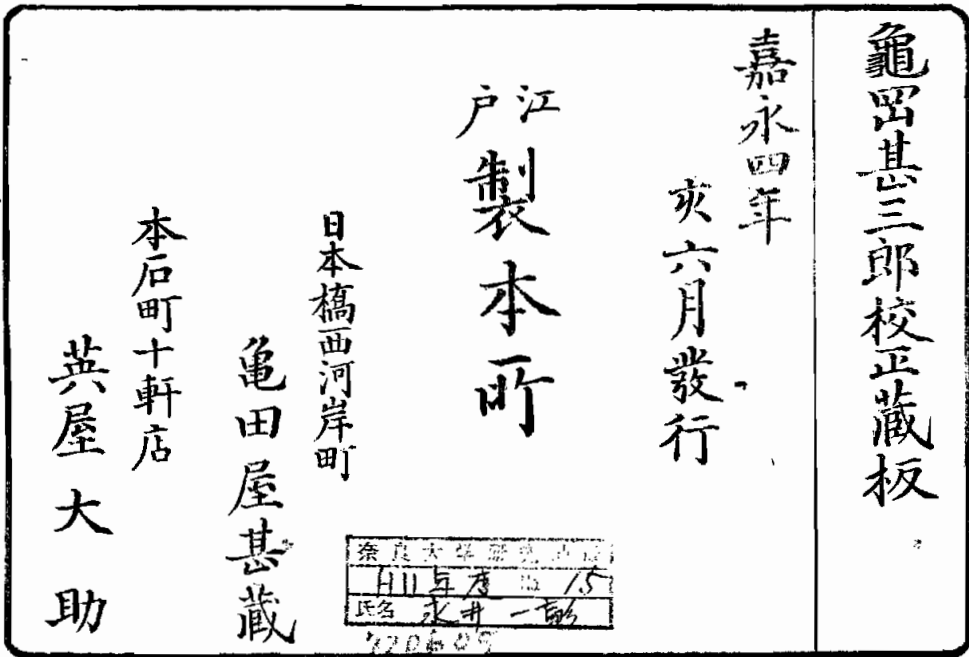 龜岡甚三郎校正蔵板
嘉永四年
亥六月發行
江戸
製本町
日本橋西河岸町
亀田屋甚蔵
本石町十軒店
英屋大助
奈良大学
H11年度 15
氏名 永井一彰